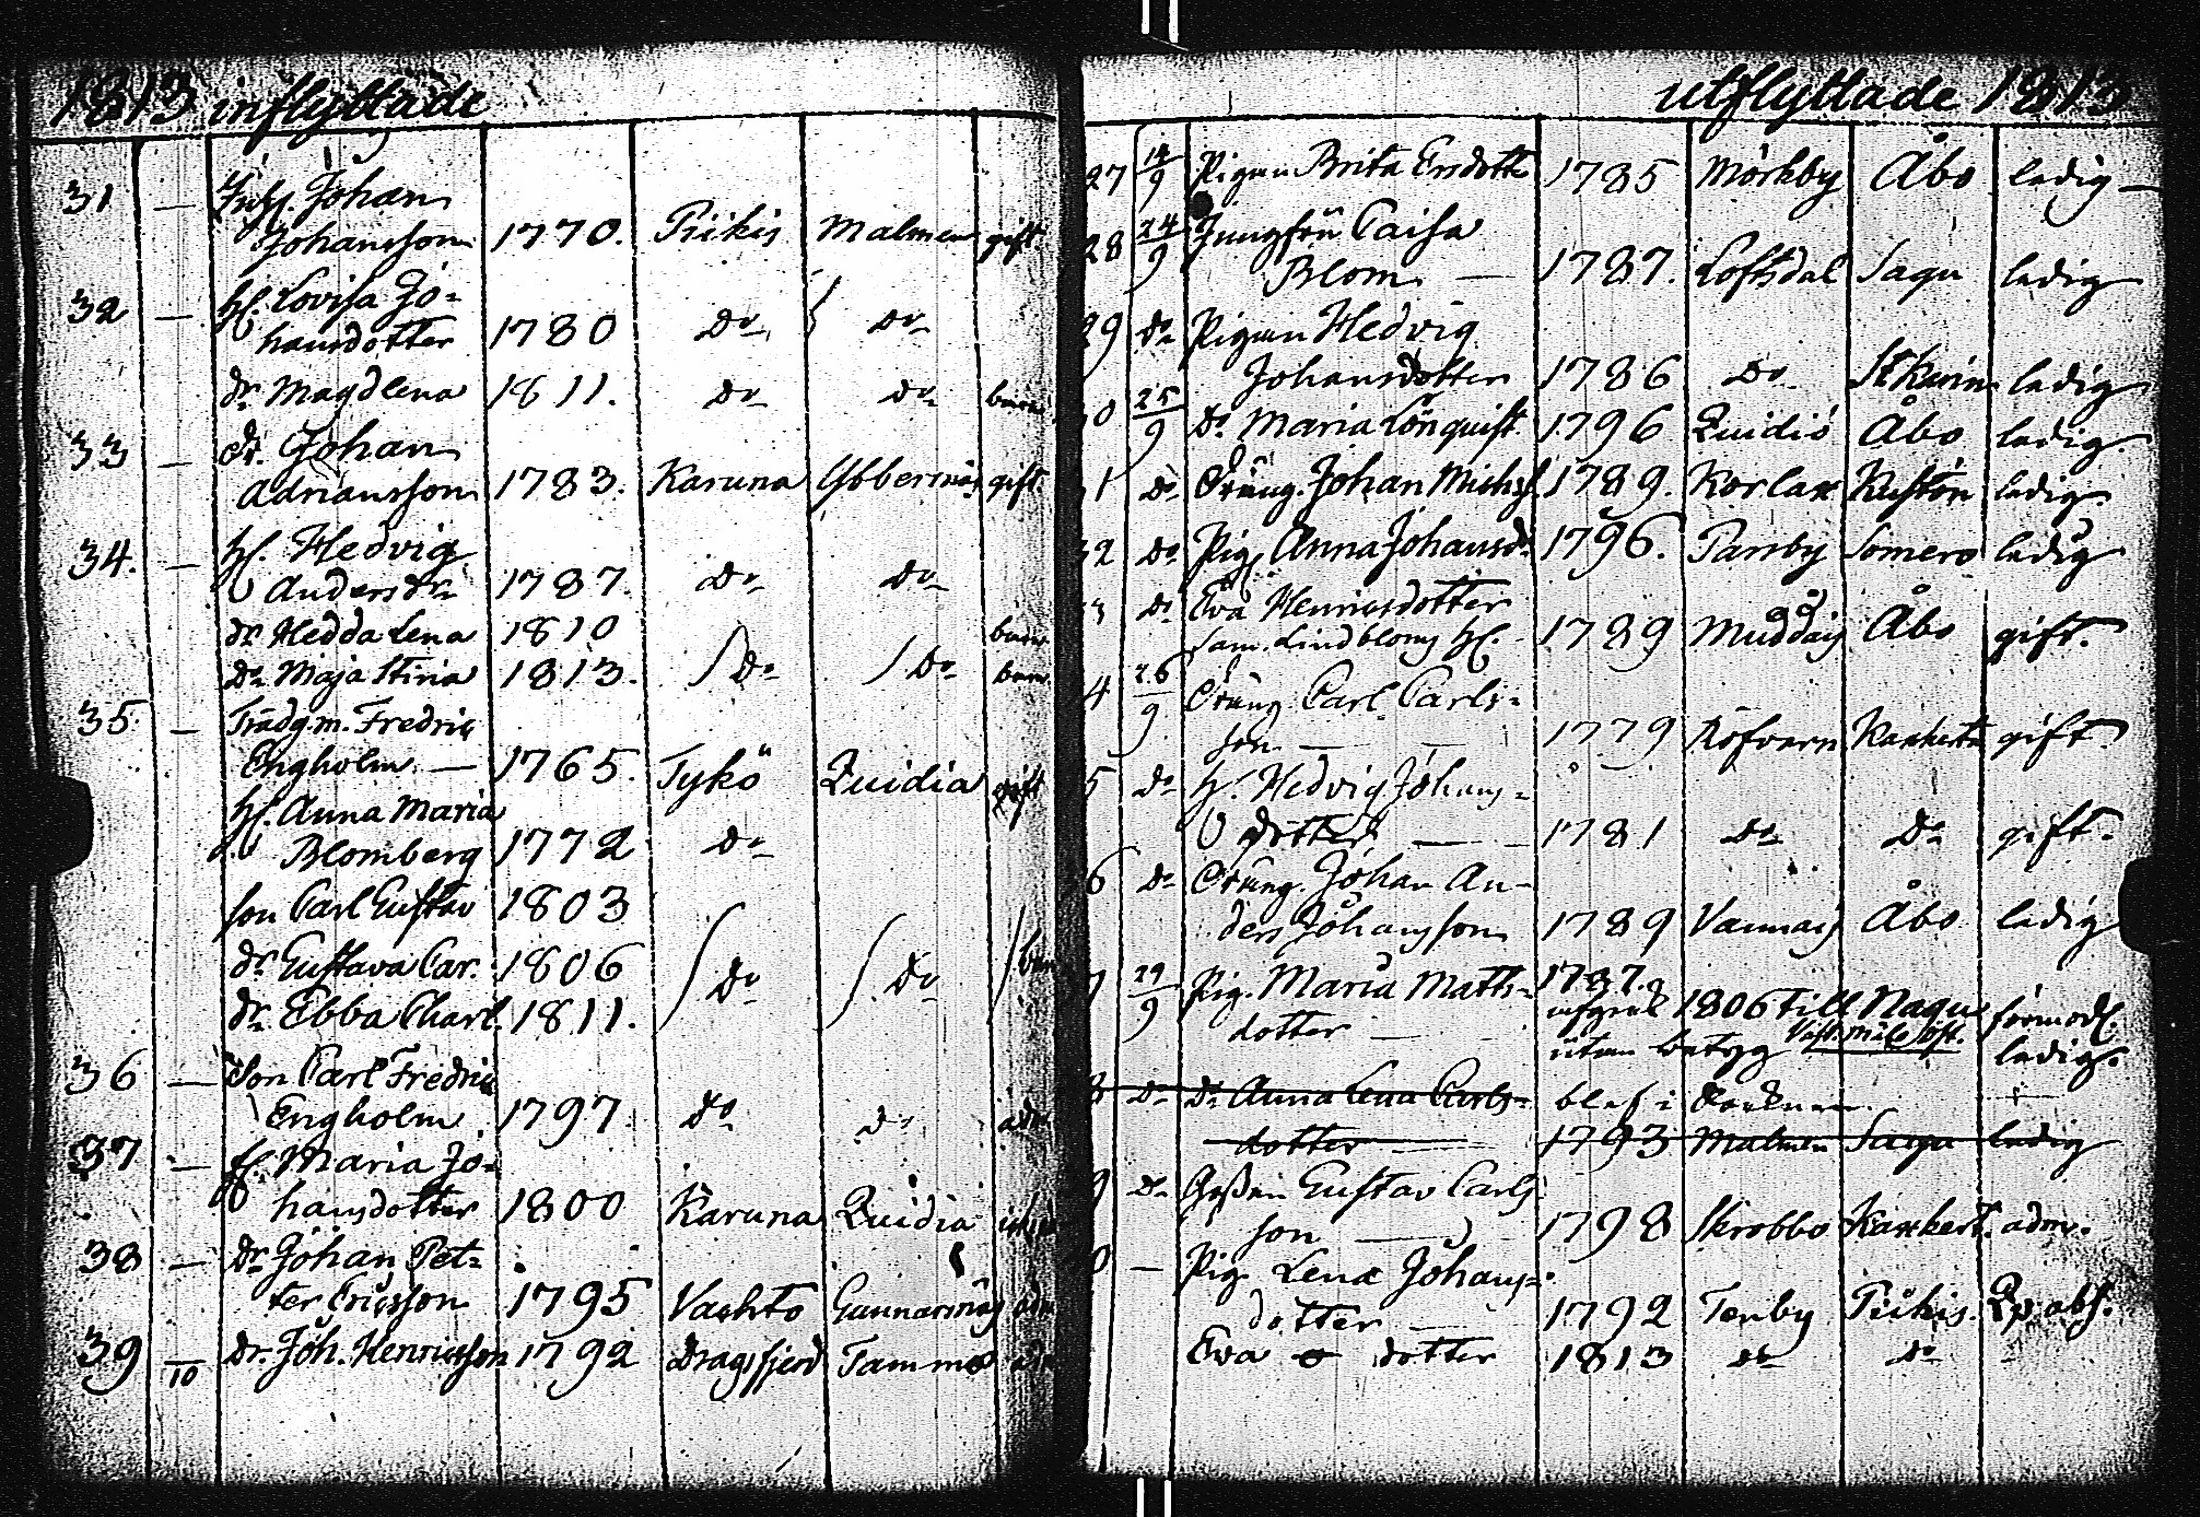 1813 inflyttade
31 — Inh. Johan
Johansson 1770. Piikis Malmen gift.
32 — H. Lovisa Jo-
hansdotter 1780 Do Do
dr. Magdlena 1811. Do Do barn
33 — Dr. Johan
Adriansson 1783. Karuna Ybbersnäs gift.
34. — H. Hedvig
Andersdr 1787. Do Do
dr. Hedda Lena 1810 barn
Dr Maja Stina 1813. Do Do barn
35 — Trädg.m. Fredric
Engholm — 1765. Tykö Quidia gift
H. Anna Maria
Blomberg 1772 Do
son Carl Gustav 1803
dr Gustava Car. 1806 Do Do barn
dr. Ebba Charl. 1811.
36 — Son Carl Fredric
Engholm 1797. Do Do adm
37 — P. Maria Jo-
hansdotter 1800 Karuna Quidia
38 — Dr Johan Pet-
ter Ericsson 1795 Vashto Gunnarsnäs adm
39 10 Dr. Joh. Henricsson 1792 Dragsfjerd Tammo adm
utflyttade 1813
27 14/9 Pigan Brita Ersdottr 1785 Mörkby Åbo ledig —
28 24/9 Jungfru Caisa
Blom — 1787. Loftsdal Sagu ledig
29 Do Pigan Hedvig
Johansdotter 1786 Do St Karins ledig
0 25/9 Do Maria Lönquist 1796 Quidiö Åbo ledig.
1 Do Dräng. Johan Michss. 1789. Korlax Kustön ledig.
32 Do Pig. Anna Johansdr 1796. Parsby Somero ledig
3 Do Eva Henricsdotter
Sam. Lindbloms H. 1789 Muddais Åbo gift.
4 26/9 Dräng Carl Carls-
son — — 1779 Röfvarn Kankerta gift
5 Do H. Hedvig Johans-
dotter — 1781 Do Do gift.
6 Do Dräng. Johan An-
ders Johansson 1789 Vannais Åbo ledig
7 29/9 Pig. Maria Matts- 1787.
dotter — afgick 1806 till Nagu förmodl.
utan betyg ledig.
8 Do Do Anna Lena Carls- blef i
dotter — 1793 Malmen Sagu ledig
9 Do Gossen Gustav Carls
son — 1798 Skrobbo Kankert. adm.
0 — Pig. Lena Johans-
dotter — 1792 Tenby Piikis. Qp. abs.
Eva o dotter 1813 Do Do